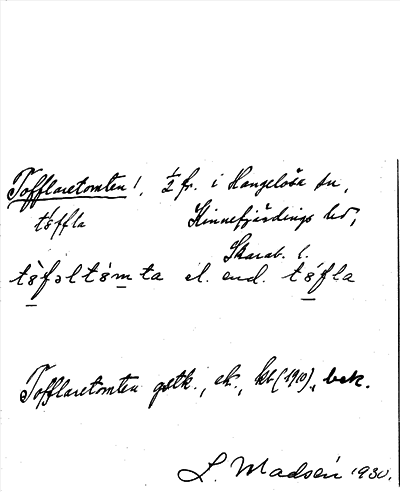 Tofflaretomten!, ½ fr. i Hangelösa sn,
töffla Kinnefjärdings hd,
Skarab. l.
tö̀fəltòm̲ta el. end. tö́fla
Tofflaretomten gstk., ek., kb (1910), bek.
L. Madsén 1930.